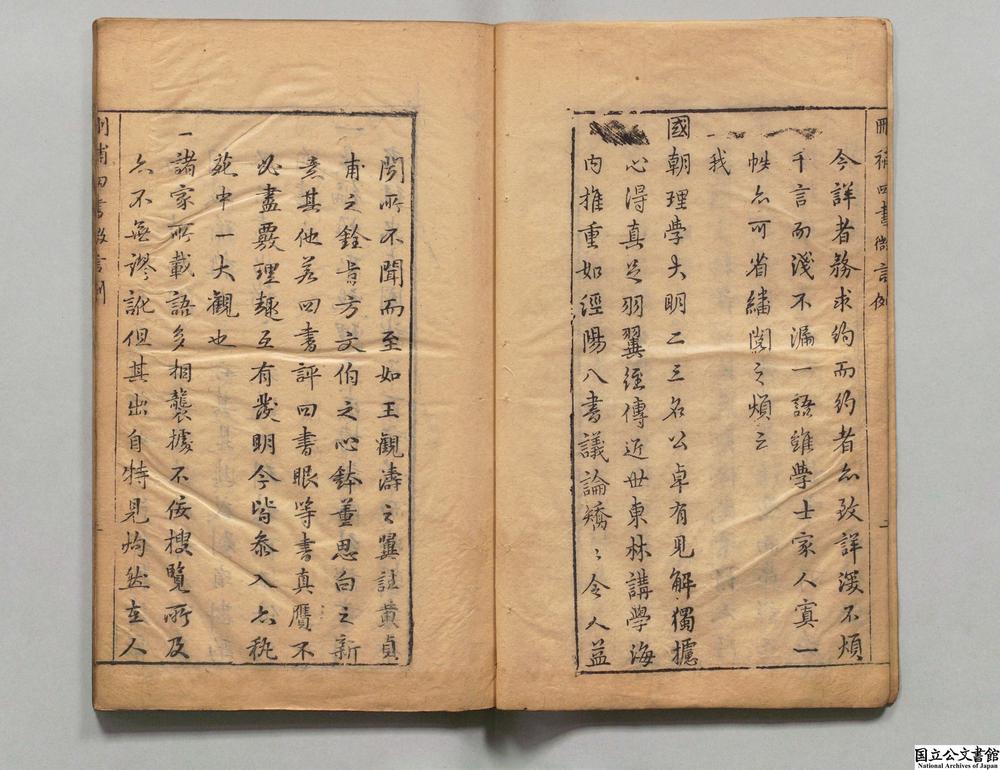 刪補四書微言例
今詳者務求約而約者亦致詳泼不煩
千言而淺不漏一語雖學士家人寘一
帙亦可省繙閱之煩云
一我
國朝理學大明二三名公卓有見解獨攄
心得真足羽翼經傳近世東林講學海
內推重如經陽八書議論矯〻令人益
聞所不聞而至如王觀濤之翼註黃貞
甫之銓旨方文伯之心鉢董思白之新
意其他若四書評四書眼等書真贋不
必盡覈理趣互有發明今皆叅入亦秇
苑中一大觀也
一諸家所載語多相襲據不佞搜覽所及
亦不無謬訛但其出自特見灼然在人
刪補四書微言例
国立公文書館
National Archives of Japan